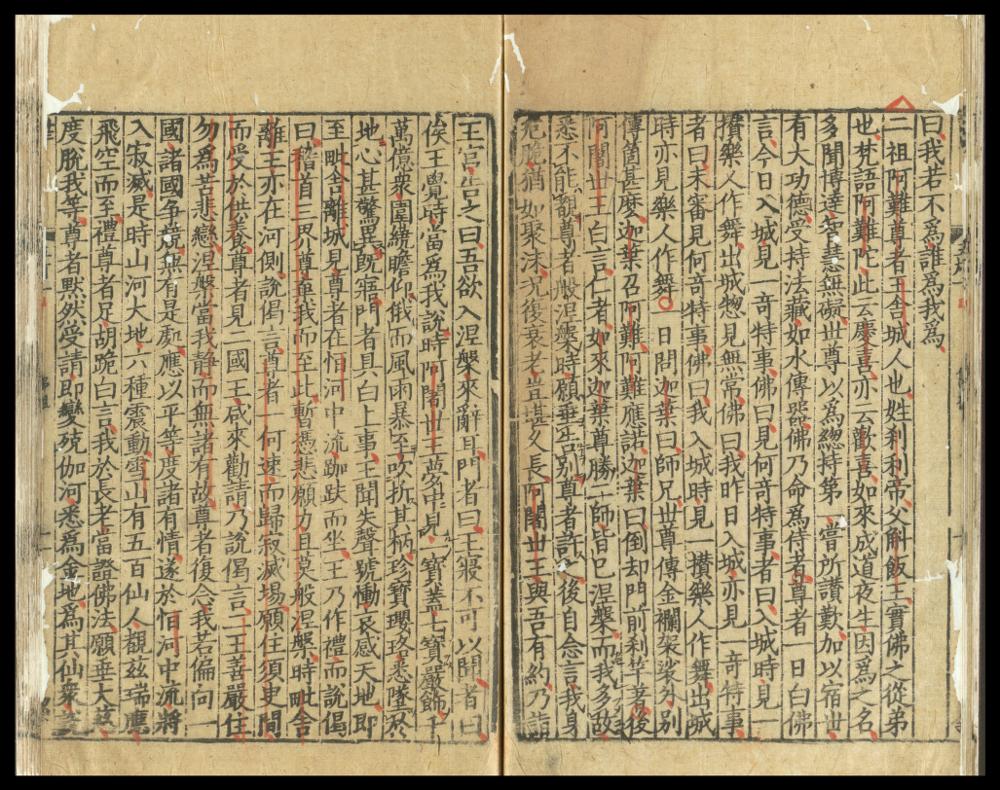 曰我若不爲誰爲我爲
二祖阿難尊者王舍城人也姓刹利帝父斛飯王實佛之從弟
也梵語阿難陀此云慶喜亦云歡喜如來成道夜生因爲之名
多聞博達智慧無礙世尊以爲總持第一嘗所讚歎加以宿世
有大功德受持法藏如水傳器佛乃命爲侍者尊者一日白佛
言今日入城見一奇特事佛曰見何奇特事者曰入城時見一
攢樂人作舞出城惣見無常佛曰我昨日入城亦見一奇特事
者曰未審見何奇特事佛曰我入城時見一攢樂人作舞出城
時亦見樂人作舞○一日問迦葉曰師兄世尊傳金襴袈裟外別
傳箇甚麽迦葉召阿難阿難應諾迦葉曰倒却門前刹竿著後
阿闍世王白言仁者如來迦葉尊勝二師皆已涅槃而我多故
悉不能覩尊者般涅槃時願垂告別尊者許之後自念言我身
危脆猶如聚沫况復衰老豈堪久長阿闍世王與吾有約乃詣
王宮告之曰吾欲入涅槃來辭耳門者曰王寢不可以聞者曰
俟王覺時當爲我說時阿闍世王夢中見一寶蓋七寶嚴飾千
萬億衆圍繞瞻仰俄而風雨暴至吹折其柄珍寶瓔珞悉墜於
地心甚驚異旣寤門者具白上事王聞失聲號慟哀感天地即
至毗舍離城見尊者在恒河中流跏趺而坐王乃作禮而說偈
曰稽首三界尊棄我而至此暫憑悲願力且莫般涅槃時毗舍
離王亦在河側說偈言尊者一何速而歸寂滅場願住須臾間
而受於供養尊者見二國王咸來勸請乃說偈言二王善嚴住
勿爲苦悲戀涅槃當我靜而無諸有故尊者復念我若偏向一
國諸國爭競無有是處應以平等度諸有情遂於恒河中流將
入寂滅是時山河大地六種震動雪山有五百仙人覩兹瑞應
飛空而至禮尊者足胡跪白言我於長老當證佛法願垂大慈
度脫我等尊者默然受請即變殑伽河悉爲金地爲其仙衆說